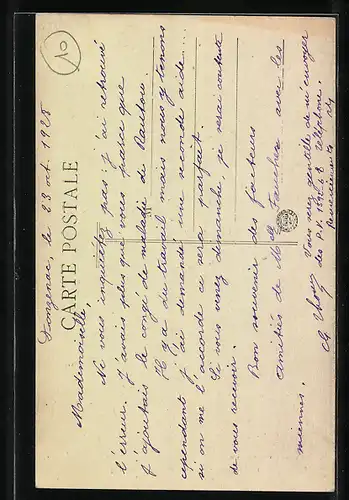 CARTE POSTALE
10
Donzenac, le 23 oct. 1925
Mademoiselle,
Ne vous inquiétez pas : j'ai retrouvé
l'erreur. J'avais plus que vous parce que
j'ajoutais le congé de maladie de
Il y a du travail mais nous y tenons
cependant j'ai demandé une seconde aide...
si on me l'accorde ce sera parfait.
Si vous venez dimanche, je serai contente
de vous recevoir.
Bon souvenir des facteurs
amitiés de Melle Faucher avec les
miennes.
Vous serez gentille de m'envoyer
des P.V. 1392 téléphone.